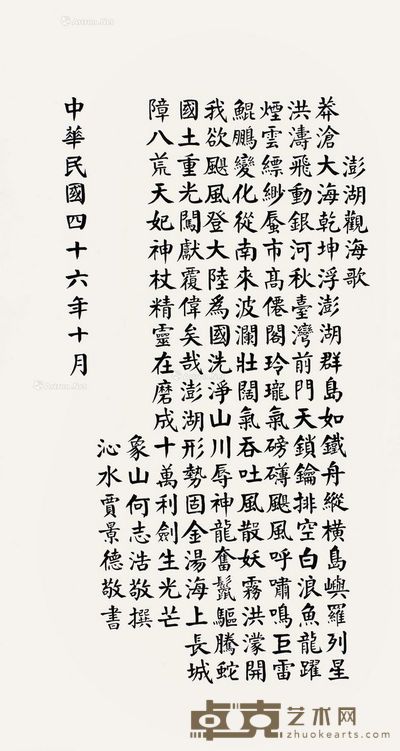 澎湖觀海歌
莽滄大海乾坤浮澎湖群島如鐵舟縱橫島嶼羅列星
洪濤飛動銀河秋臺灣前門天鎖鑰排空白浪魚龍躍
煙雲縹緲蜃市髙僊閣玲瓏氣磅礴颶風呼嘯鳴巨雷
鯤鵬變化從南來波瀾壯闊氣吞吐風散妖霧洪濛開
我欲颶風登大陸爲國洗淨山川辱神龍奮鬣驅騰蛇
國土重光闖獻覆偉矣哉澎湖形勢固金湯海上長城
障八荒天妃神杖精靈在磨成十萬利劍生光芒
象山何志浩敬撰
沁水賈景德敬書
中華民國四十六年十月
卓克艺术网
zhuokearts.com